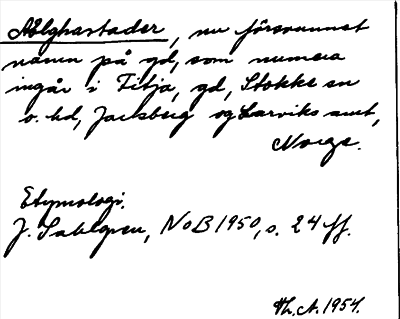 Ablghastader, nu försvunnet
namn på gd, som numera
ingår i Titja, gd, Stokke sn
o. hd, Jarlsberg og Larviks amt,
Norge.
Etymologi.
J. Sahlgren, NoB 1950, s. 24 ff.
Th. A. 1954.